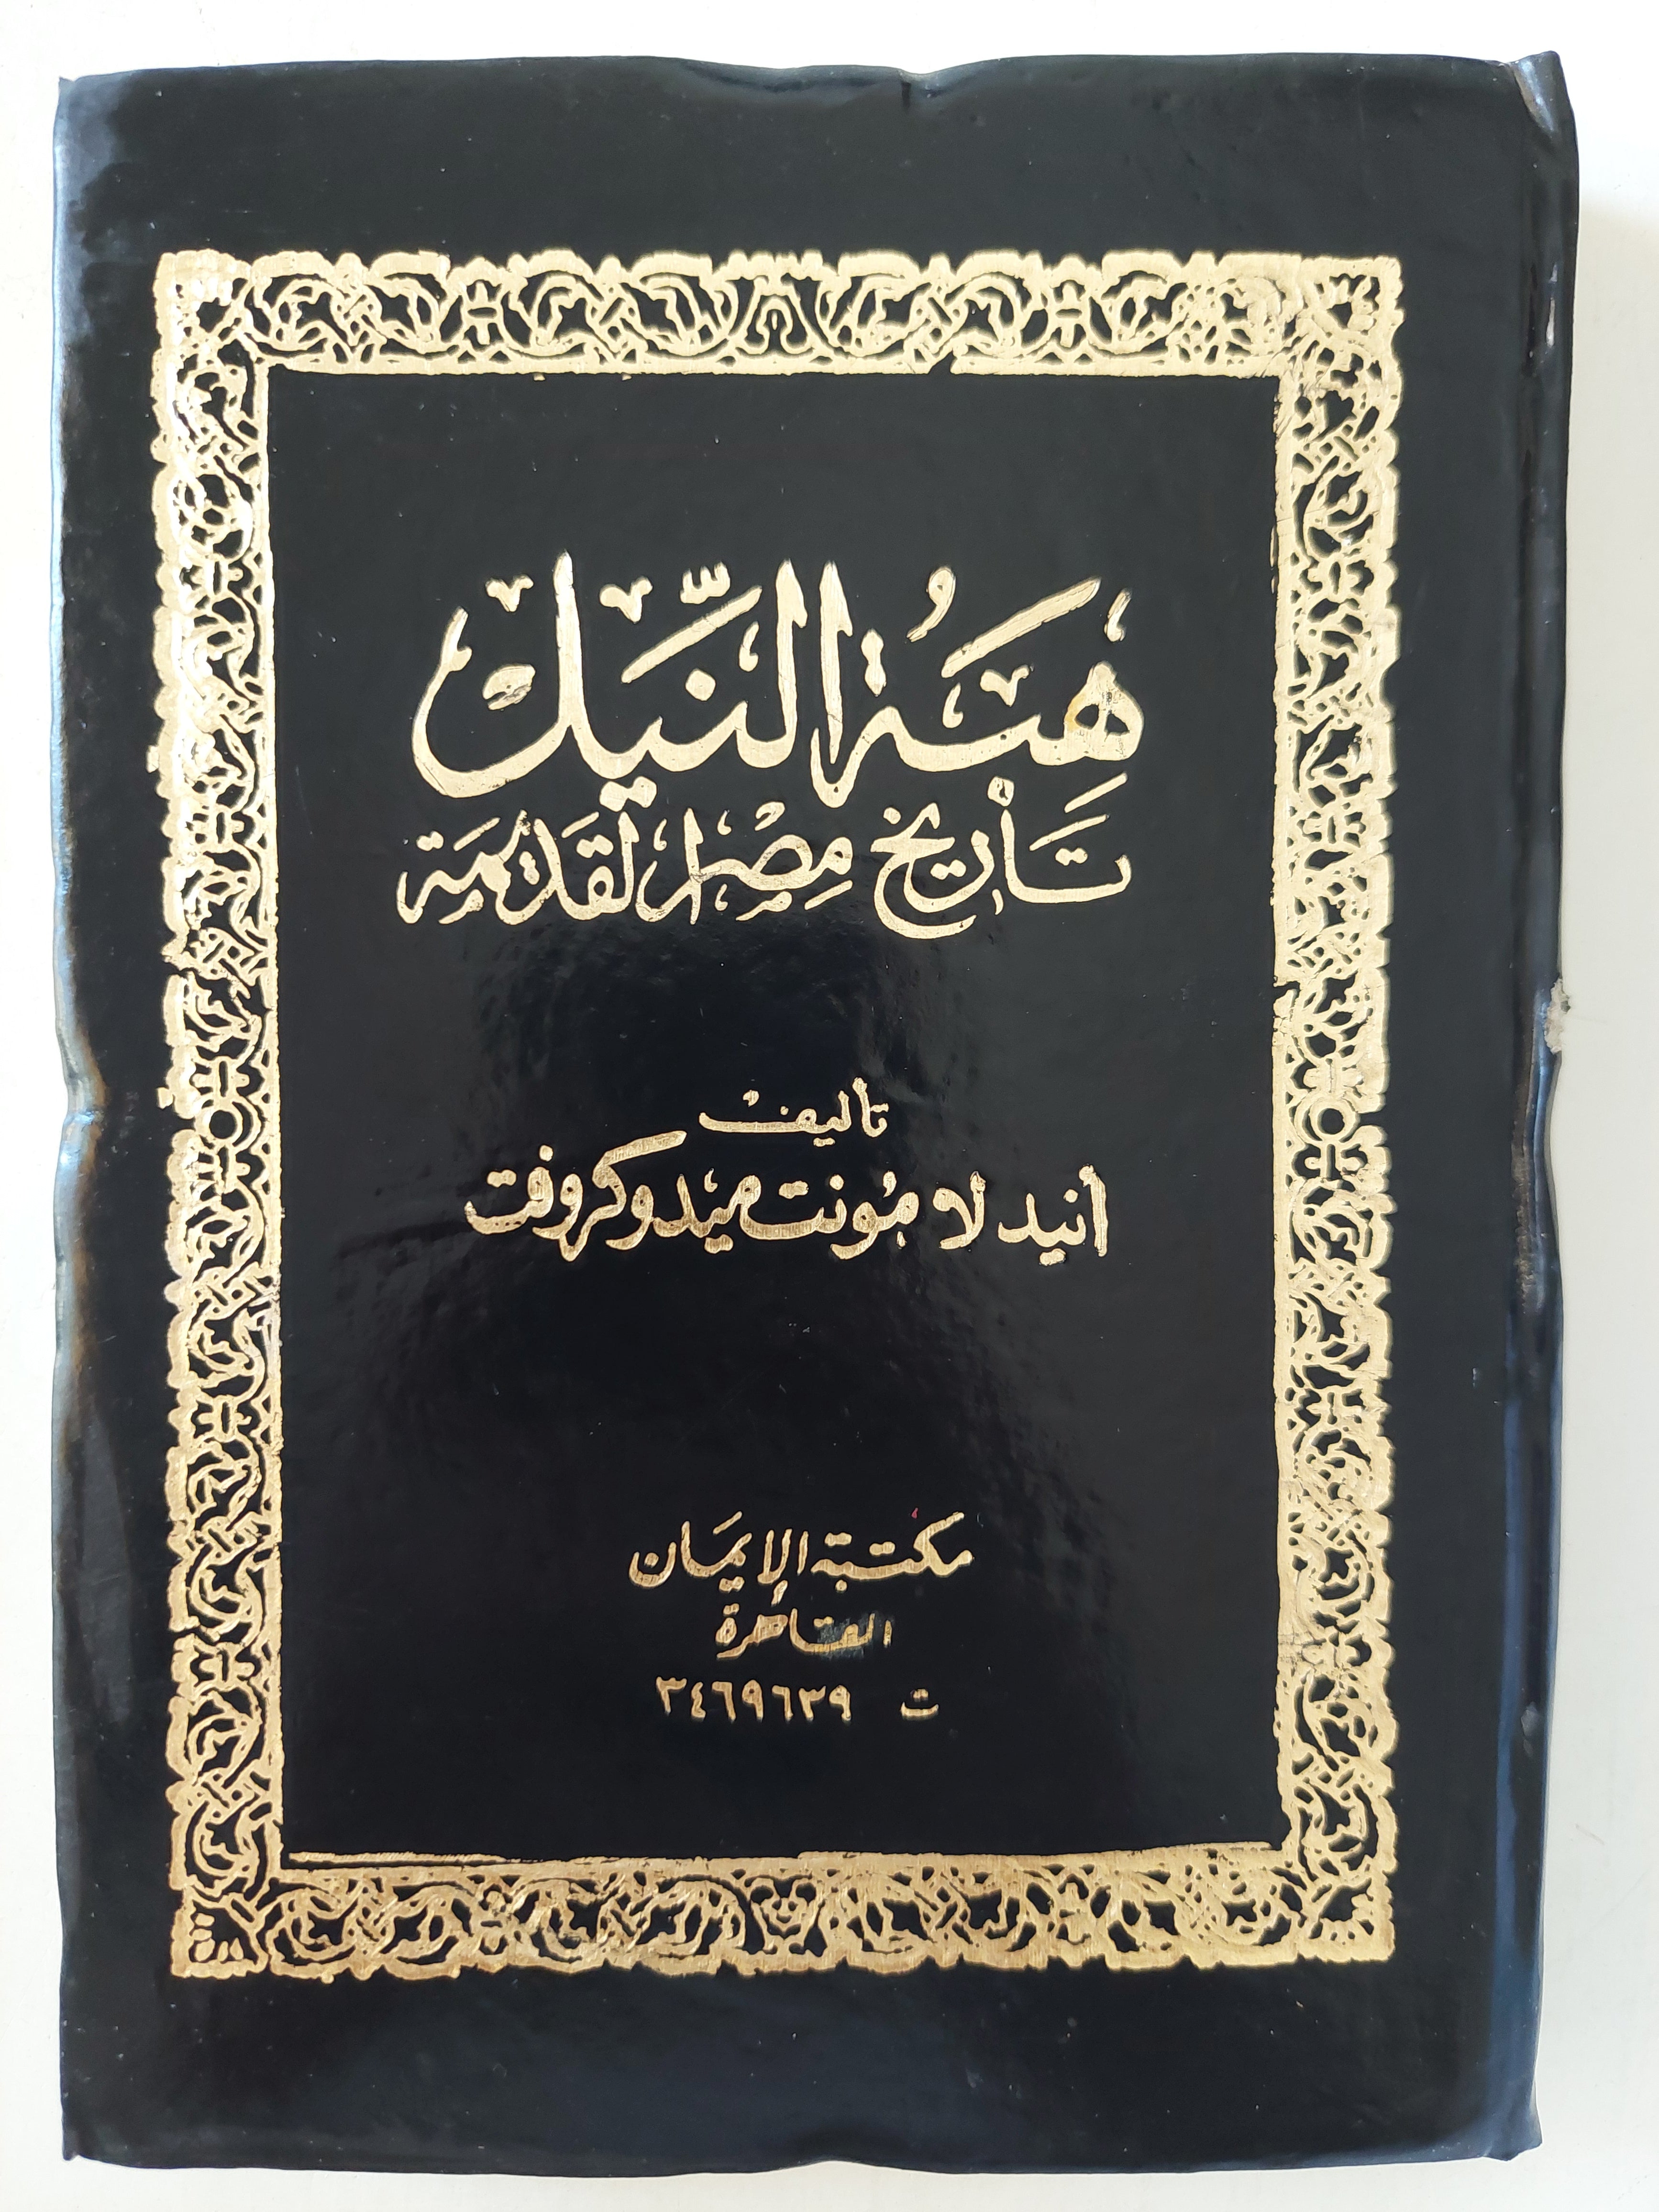 هِبَةُ النِّيل
تَأْريخ مِصْر القَديمَة
تأليف
أنيد لا مُونت ميدوكروفت
مكتبة الإيمَان
القاهرة
ت ٣٤٦٩٦٣٩